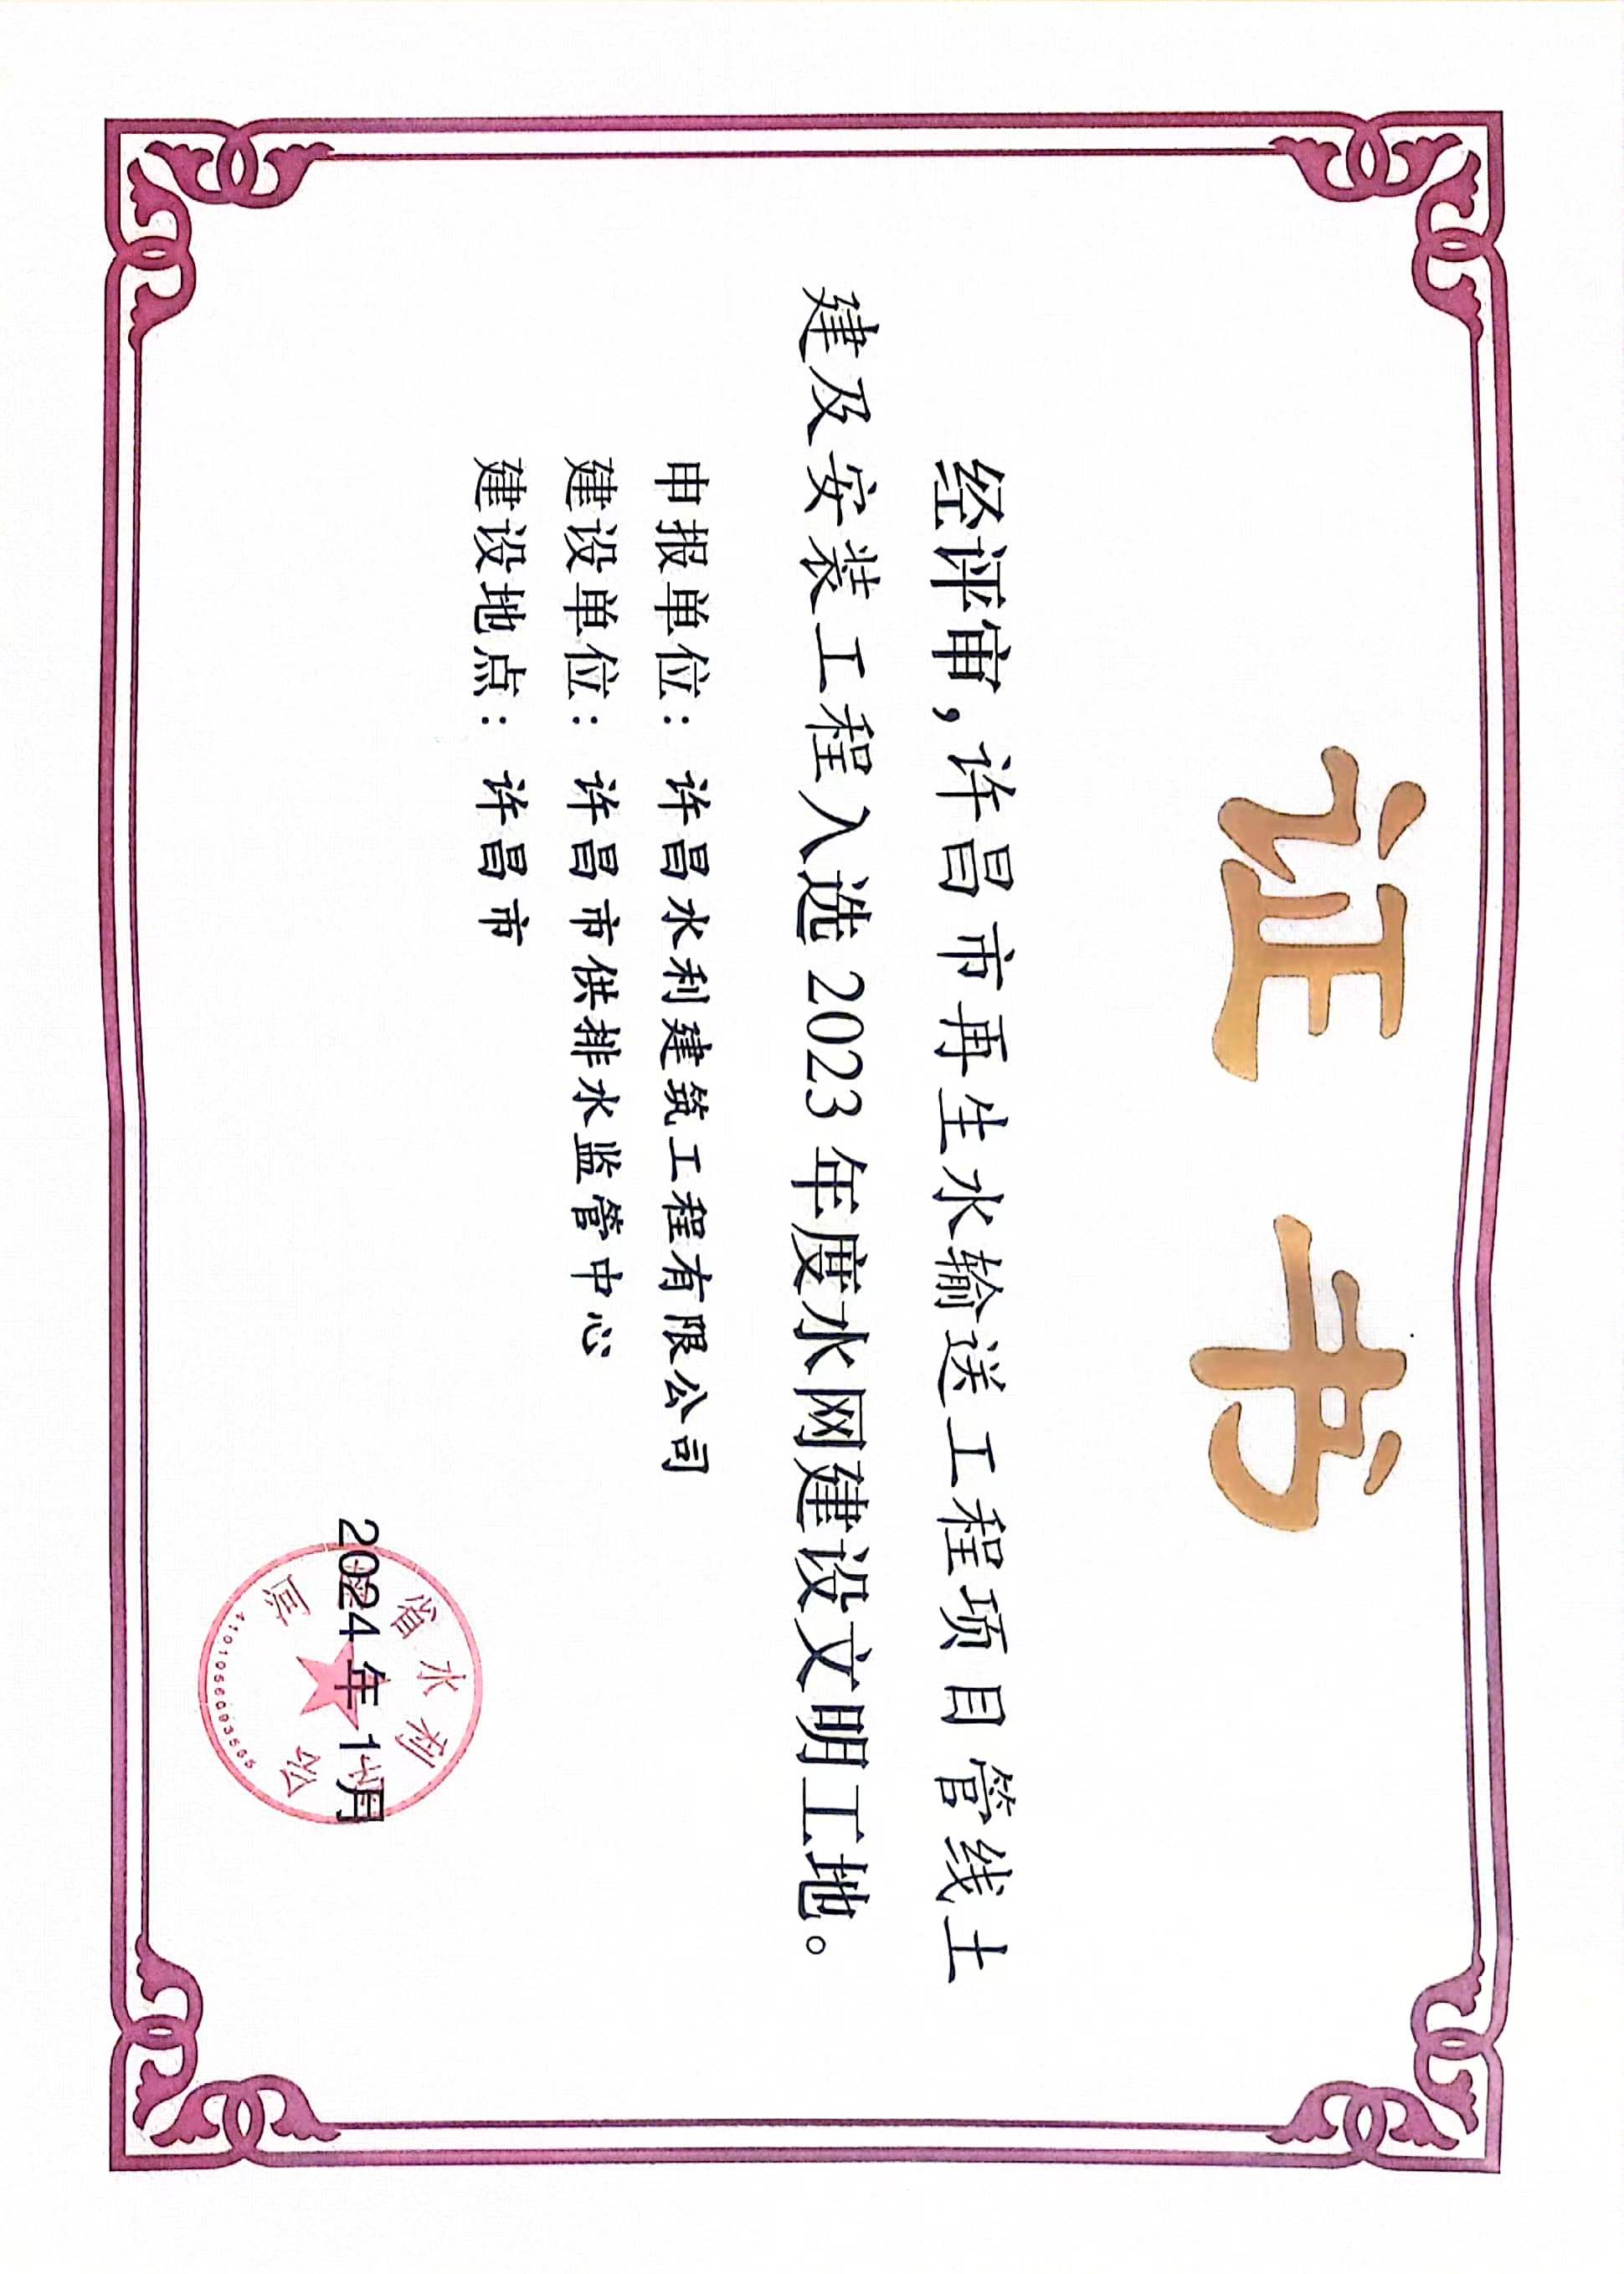 证书
经评审，许昌市再生水输送工程项目管线土
建及安装工程入选 2023 年度水网建设文明工地。
申报单位：许昌水利建筑工程有限公司
建设单位：许昌市供排水监管中心
建设地点：许昌市
河南省水利学会
2024 年 1 月
4101056093565